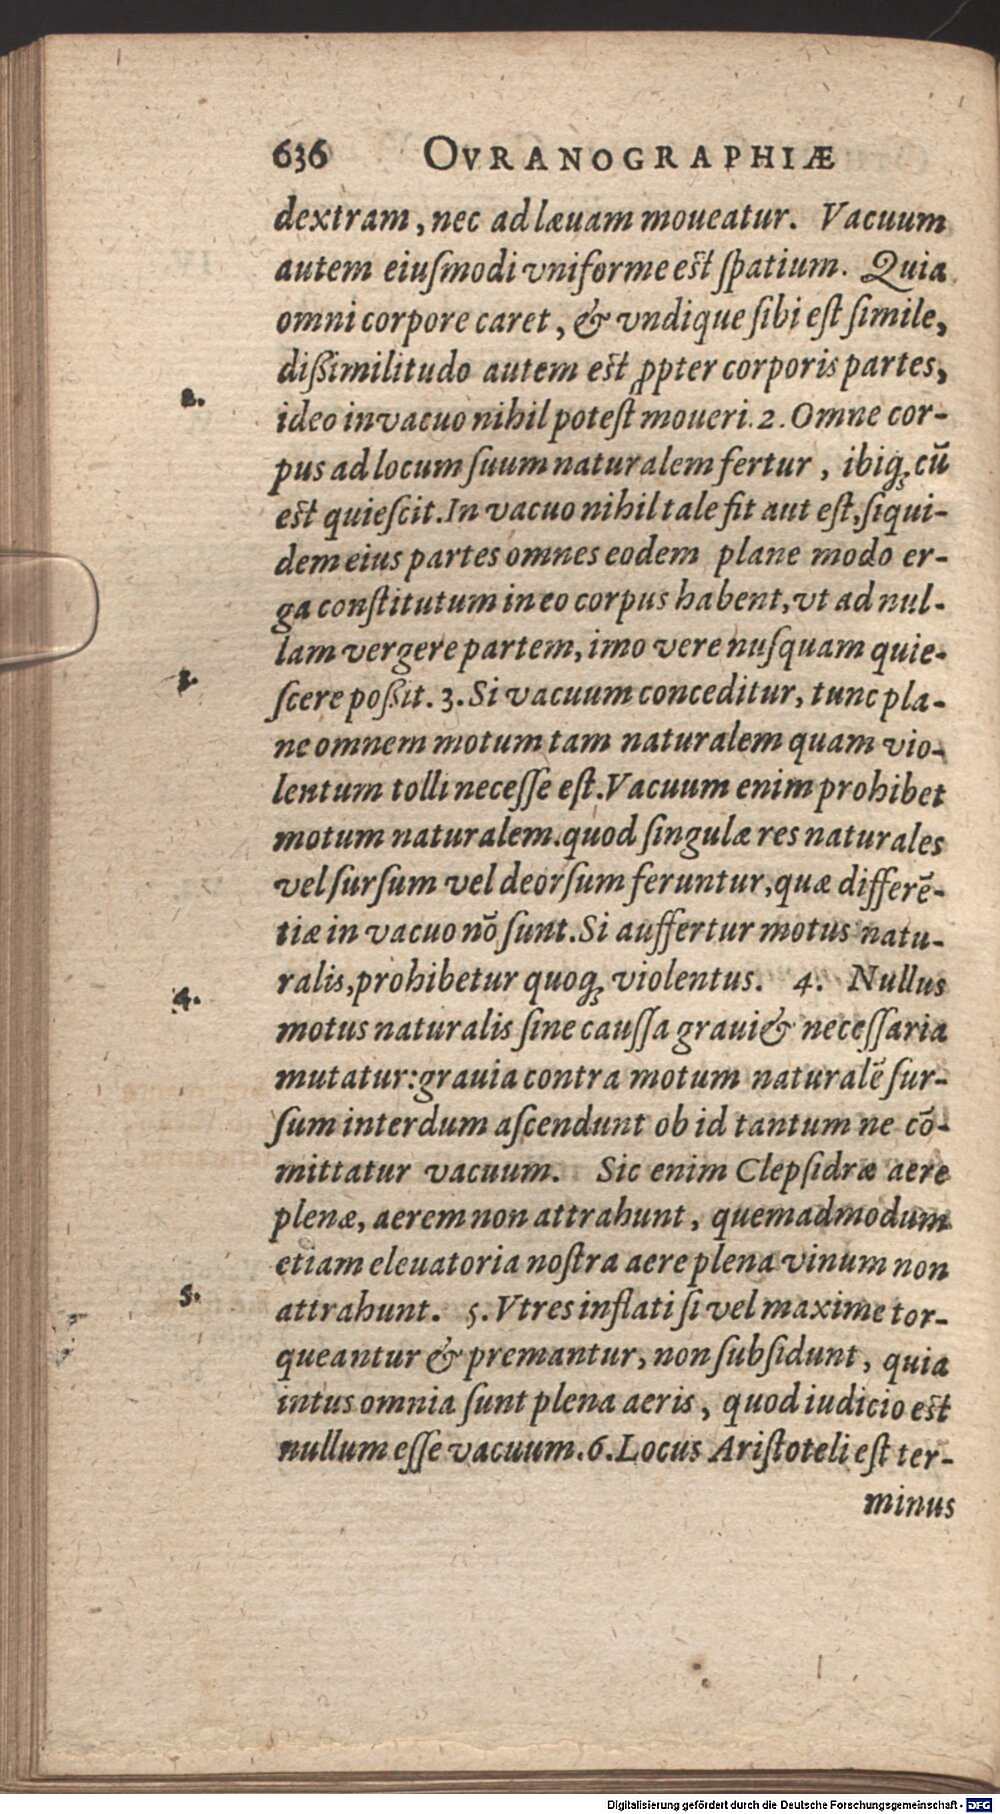 636 OVRANOGRAPHIÆ
dextram, nec ad læuam moueatur. Vacuum
autem eiuſmodi vniforme eſt ſpatium. Quia
omni corpore caret, & vndique ſibi eſt ſimile,
diſſimilitudo autem eſt ꝓpter corporis partes,
2.
ideo in vacuo nihil poteſt moueri. 2. Omne cor-
pus ad locum ſuum naturalem fertur, ibiq̨ cū
eſt quieſcit. In vacuo nihil tale fit aut eſt, ſiqui-
dem eius partes omnes eodem plane modo er-
ga conſtitutum in eo corpus habent, vt ad nul-
lam vergere partem, imo vere nuſquam quie-
3.
ſcere poſſit. 3. Si vacuum conceditur, tunc pla-
ne omnem motum tam naturalem quam vio-
lentum tolli neceſſe eſt. Vacuum enim prohibet
motum naturalem. quod ſingulæ res naturales
vel ſurſum vel deorſum feruntur, quæ differē-
tiæ in vacuo nō ſunt. Si auffertur motus natu-
4.
ralis, prohibetur quoq̨ violentus. 4. Nullus
motus naturalis ſine cauſſa graui & neceſſaria
mutatur: grauia contra motum naturalē ſur-
ſum interdum aſcendunt ob id tantum ne cō-
mittatur vacuum. Sic enim Clepſidræ aere
plenæ, aerem non attrahunt, quemadmodum
etiam eleuatoria noſtra aere plena vinum non
5.
attrahunt. 5. Vtres inflati ſi vel maxime tor-
queantur & premantur, non ſubſidunt, quia
intus omnia ſunt plena aeris, quod iudicio eſt
nullum eſſe vacuum. 6. Locus Ariſtoteli eſt ter-
minus
Digitalisierung gefördert durch die Deutsche Forschungsgemeinschaft - DFG